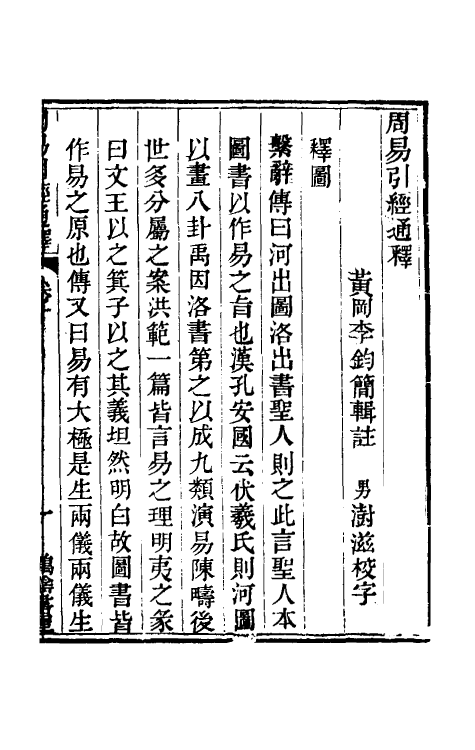 周易引經通釋
黃岡李鈞簡輯註　男澍滋校字
釋圖
繫辭傳曰河出圖洛出書聖人則之此言聖人本
圖書以作易之旨也漢孔安國云伏羲氏則河圖
以畫八卦禹因洛書第之以成九類演易陳疇後
世多分屬之案洪範一篇皆言易之理明夷之彖
曰文王以之箕子以之其義坦然明白故圖書皆
作易之原也傳又曰易有大極是生兩儀兩儀生
周易引經通釋　卷　一